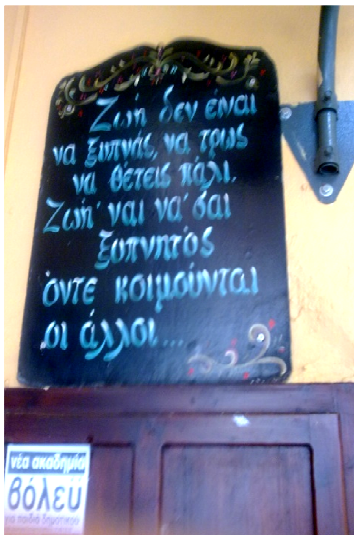 Ζωή δεν είναι
να ξυπνάς, να τρως
να θέτεις πάλι.
Ζωή 'ναι να 'σαι
ξυπνητός
όντε κοιμούνται
οι άλλοι...
νέα ακαδημία
βόλεϋ
για παιδιά δημοτικού